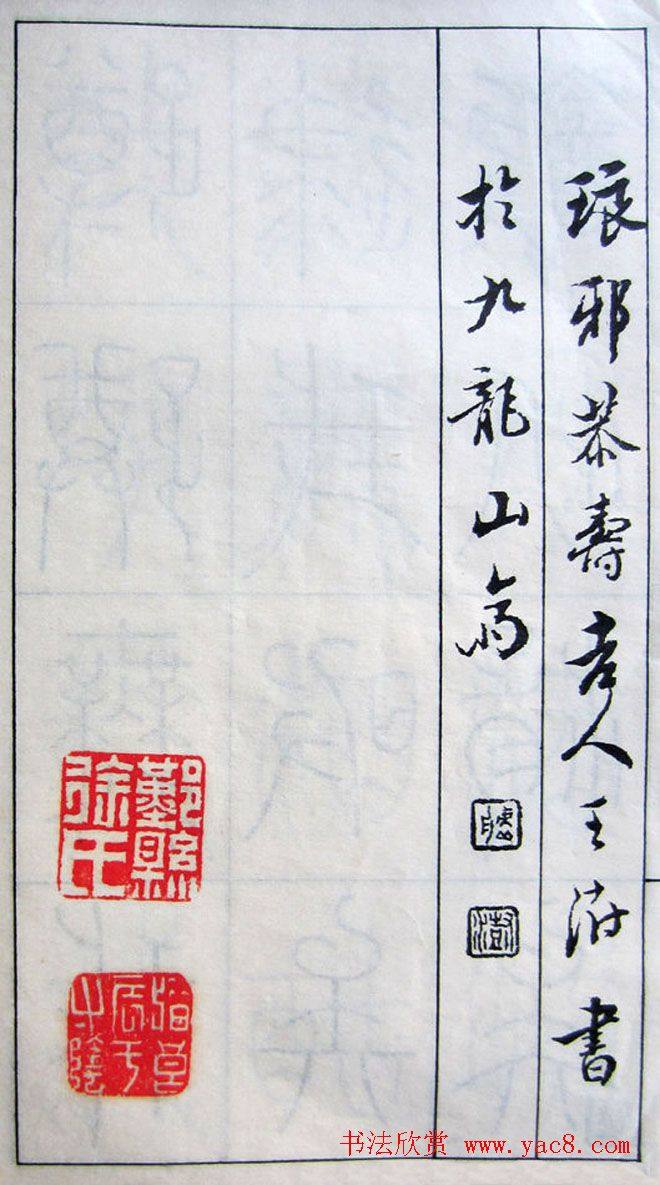 琅邪恭壽老人王澍書
於九龍山齋
澍
鄞縣徐氏
书法欣赏 www.yac8.com